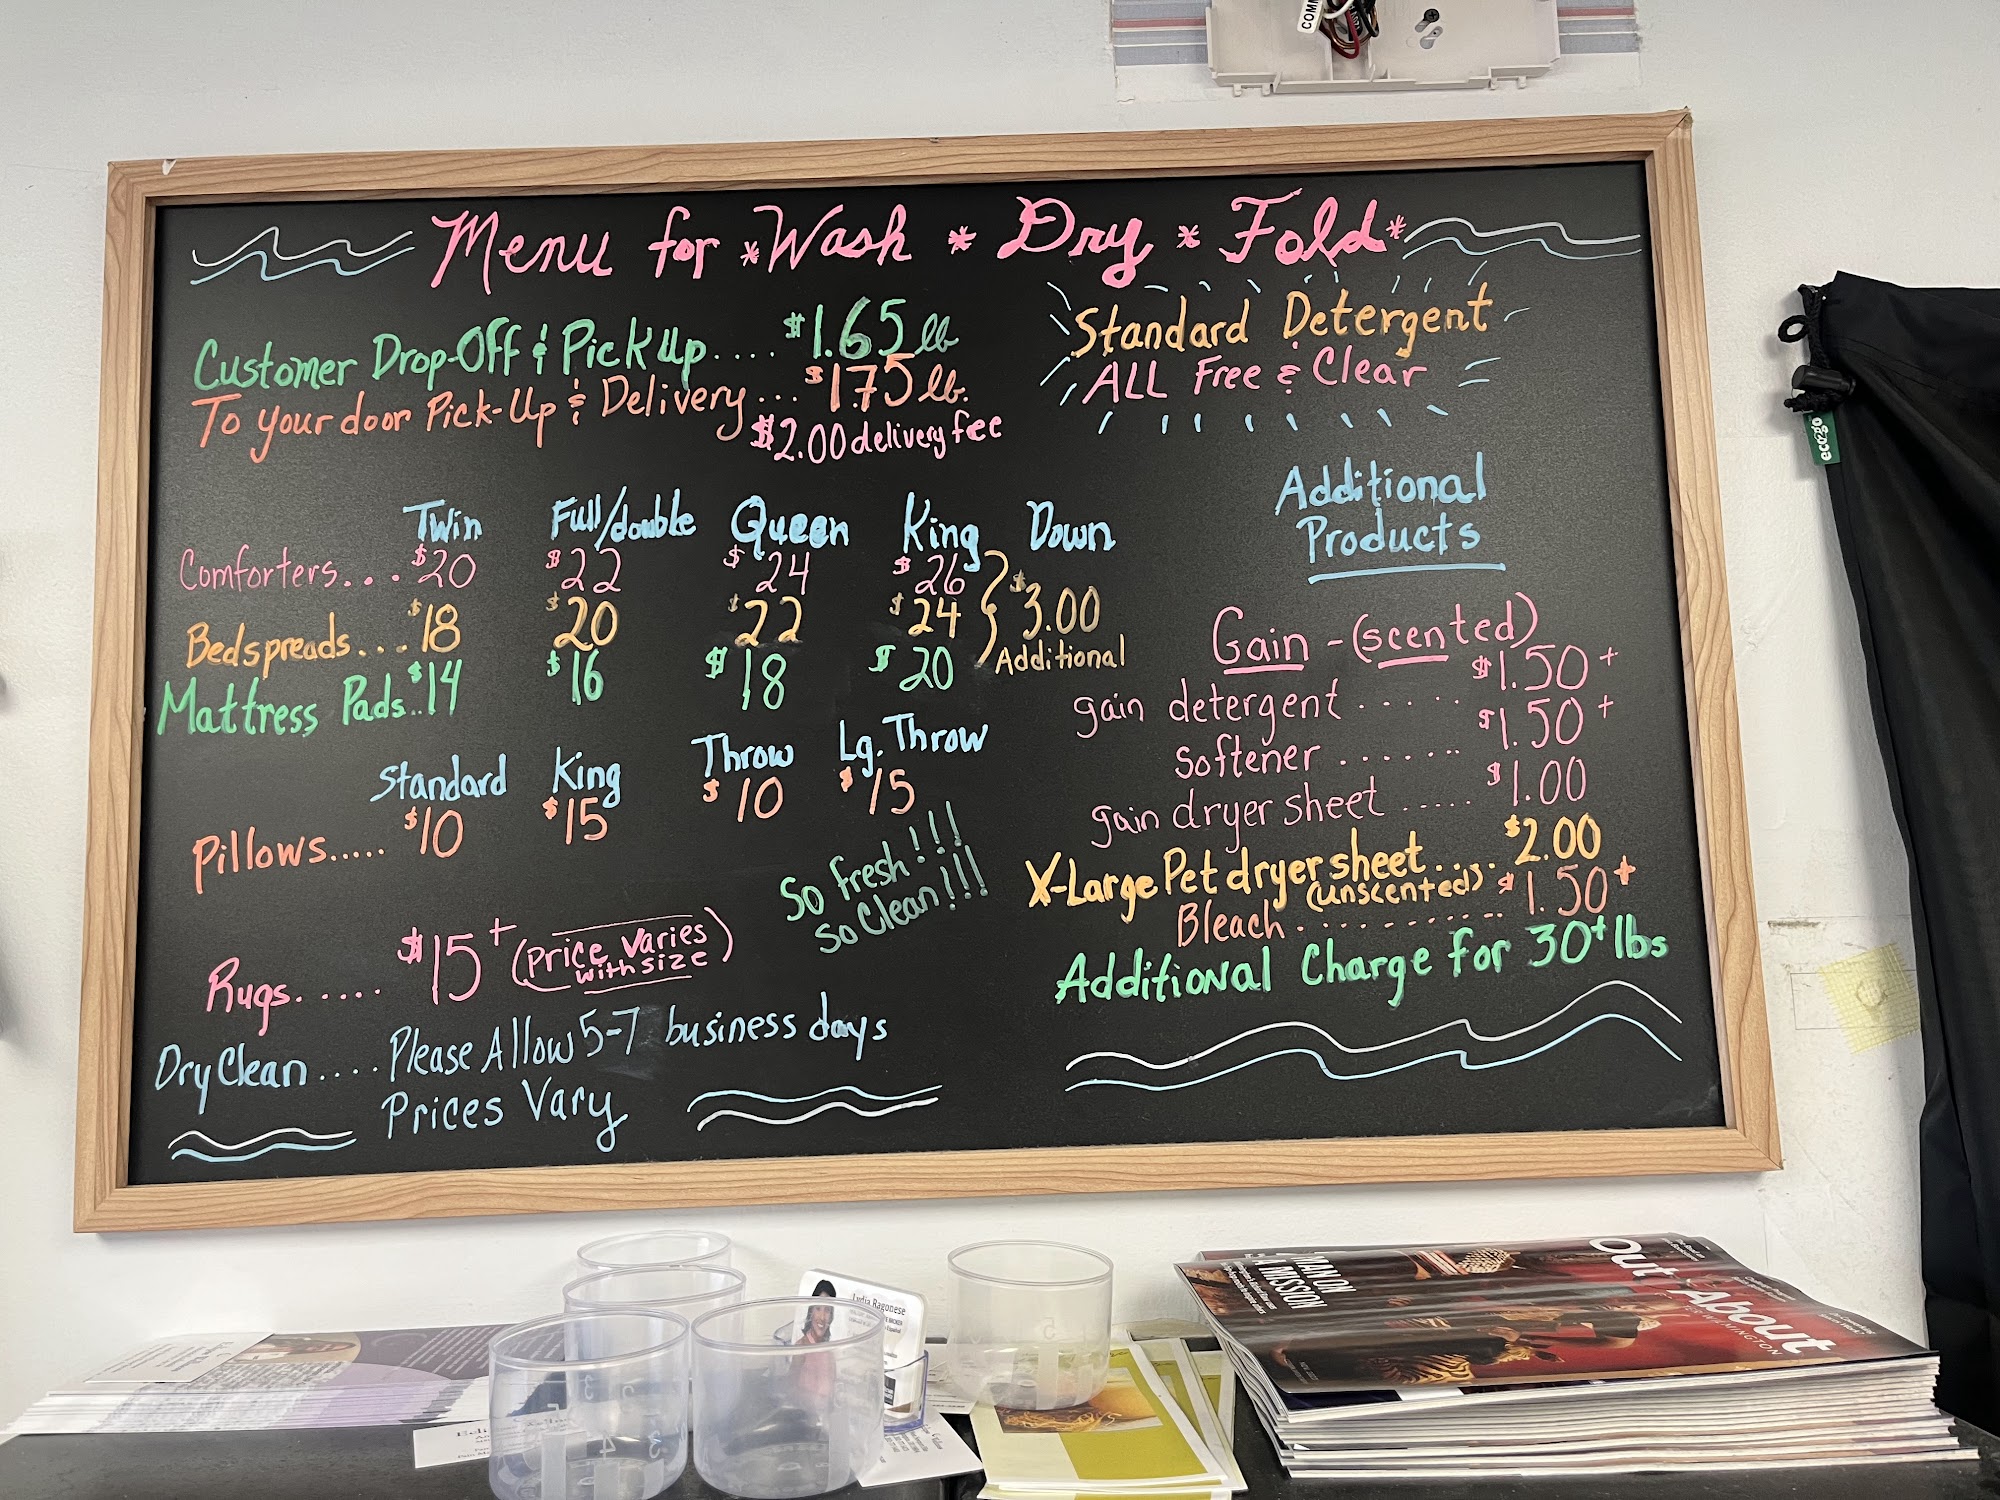 COM
Menu for *Wash * Dry * Fold*
Customer Drop-Off & Pick Up.... $1.65 lb
To your door Pick-Up & Delivery... $1.75 lb.
$2.00 delivery fee
Standard Detergent
ALL Free & Clear
Twin Full/double Queen King Down
Comforters... $20 $22 $24 $26
Bedspreads... $18 $20 $22 $24
$3.00
Additional
Mattress Pads.. $14 $16 $18 $20
Standard King Throw Lg. Throw
Pillows..... $10 $15 $10 $15
So Fresh!!!
So Clean!!!
Rugs..... $15+ (Price Varies
with size)
Dry Clean.... Please Allow 5-7 business days
Prices Vary
Additional
Products
Gain - (scented)
gain detergent ..... $1.50+
Softener ....... $1.50+
gain dryer sheet ..... $1.00
X-Large Pet dryer sheet.... $2.00
(unscented)
Bleach......... $1.50+
Additional Charge for 30+ lbs
eco2go
Lydia Ragonese
MAN ON
A MISSION
Out & About
WILMINGTON